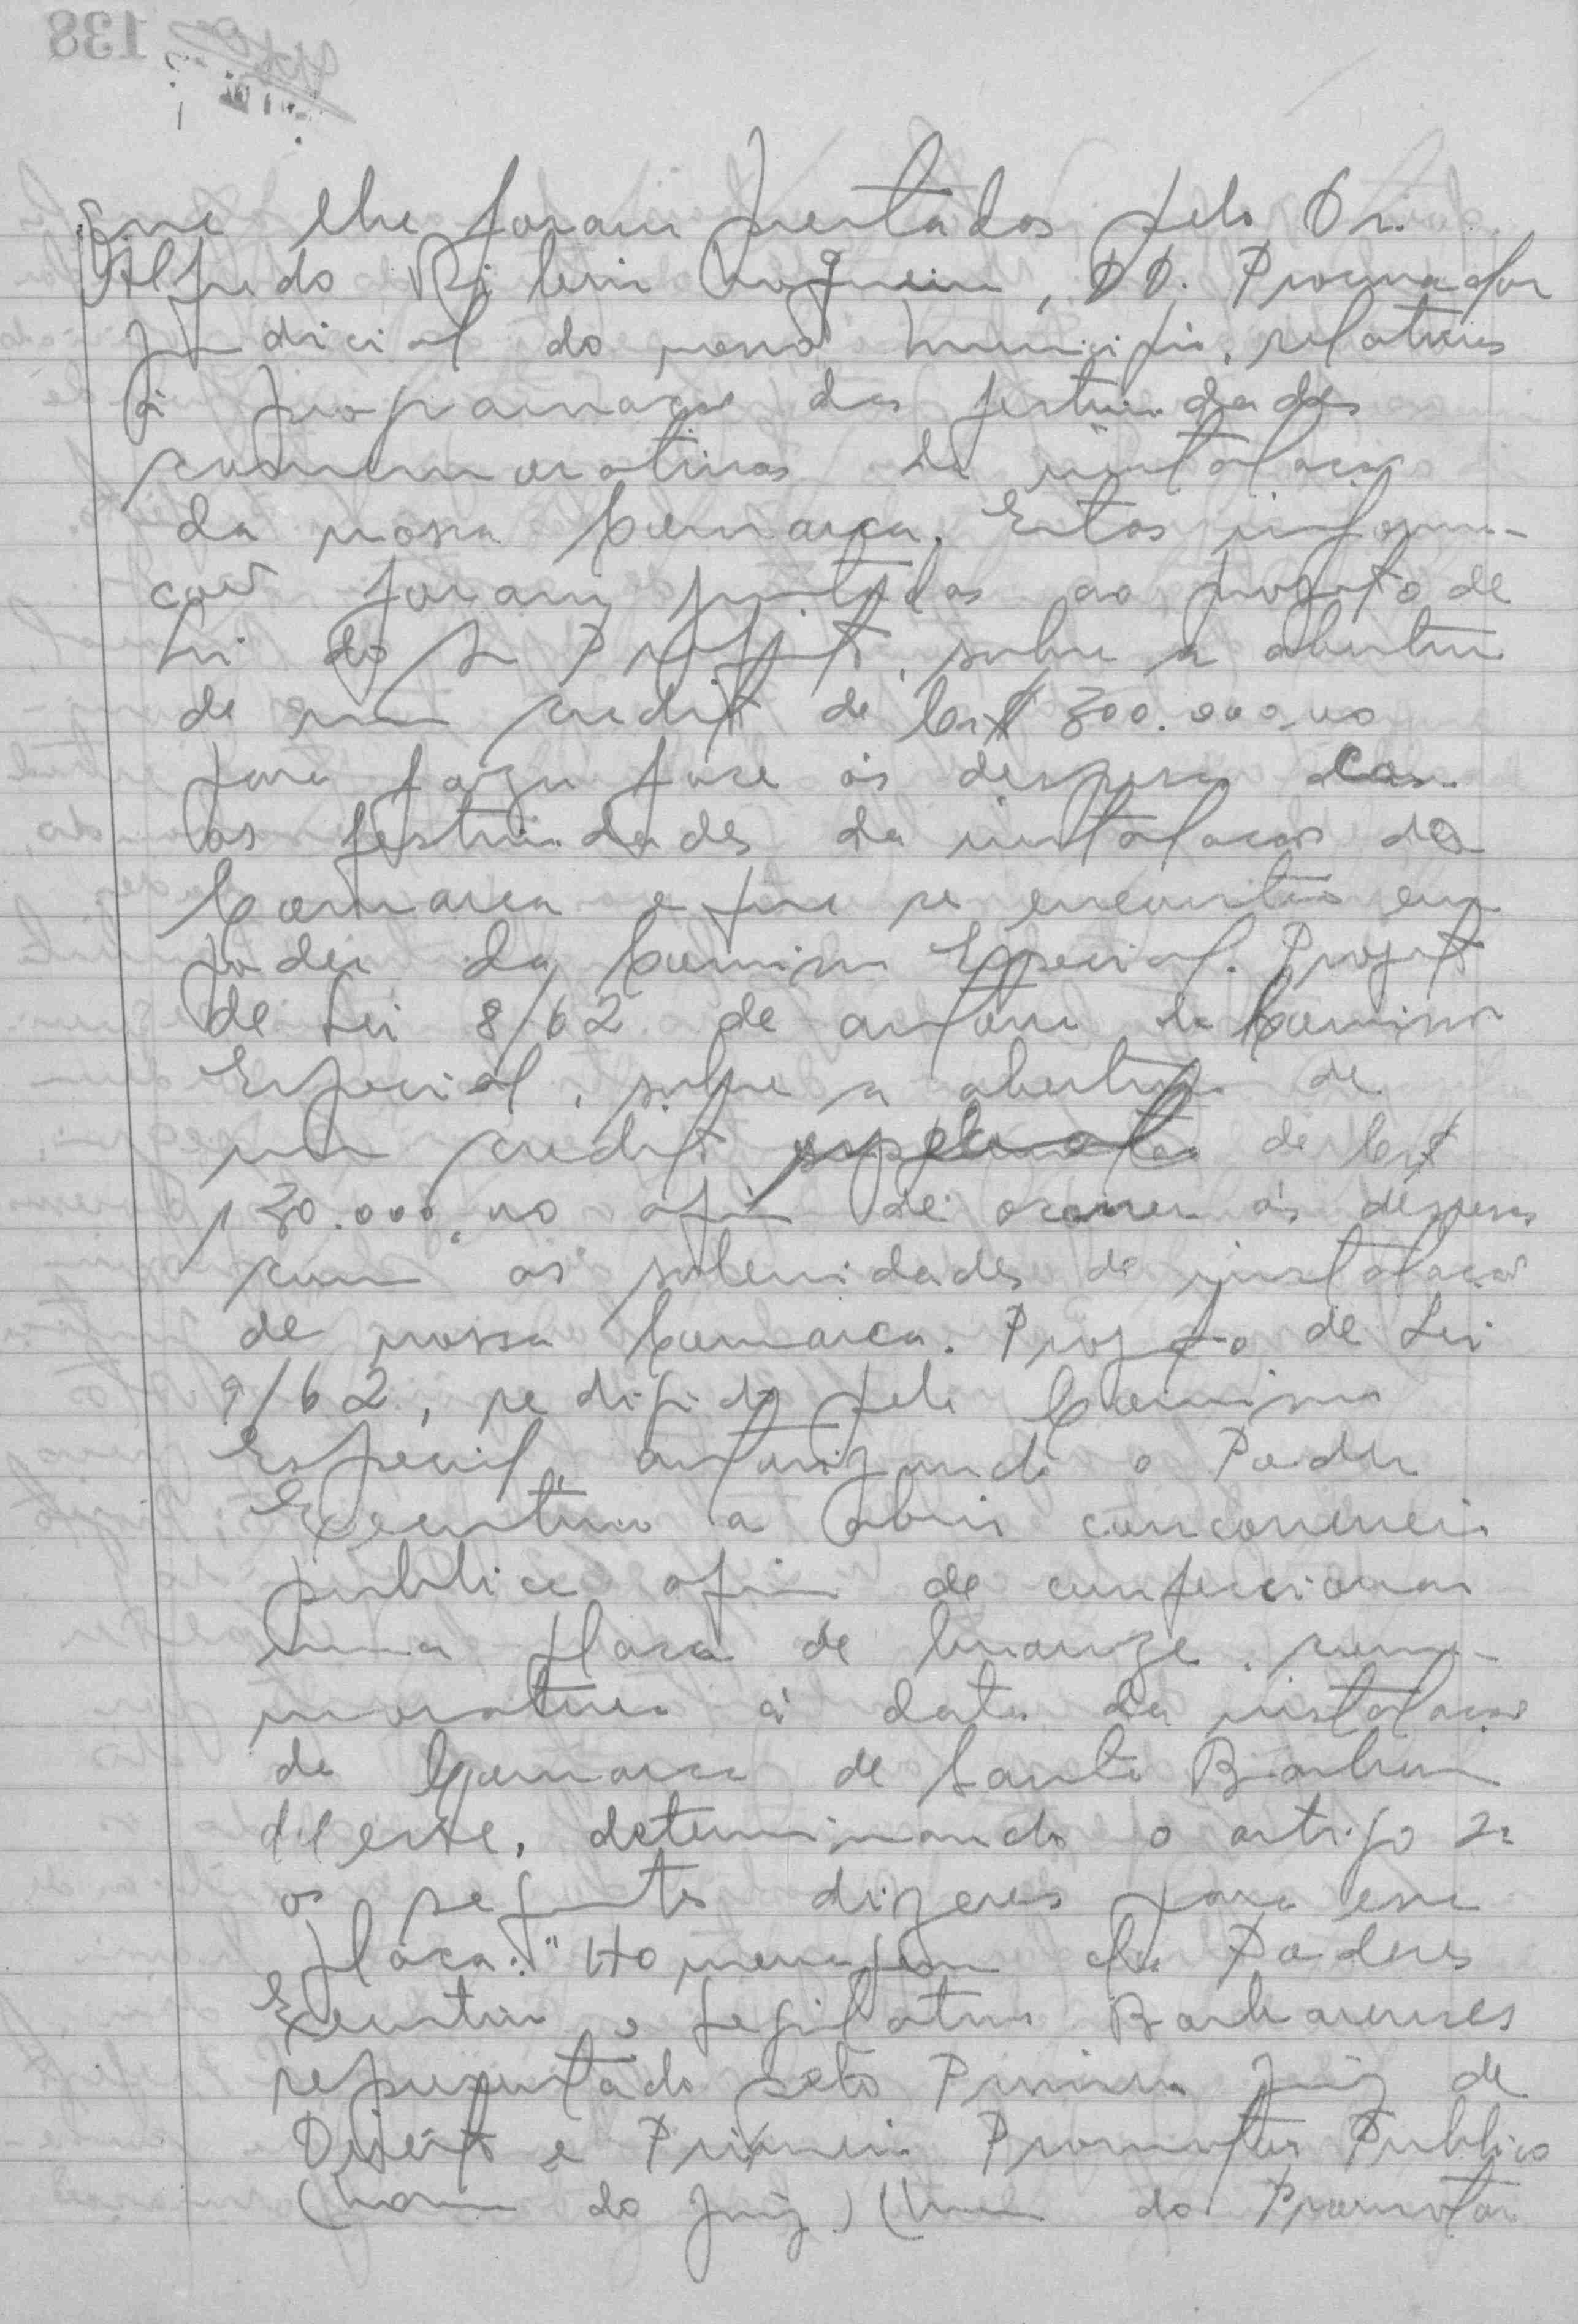 que lhe foram prestados pelo Dr.
Alfredo Ribeiro Nogueira, DD. Procurador
Judicial do nosso municipio, relativos
à programação das festividades
comemorativas da instalação
da nossa Comarca. Estas informa-
ções foram juntadas ao projeto de
Lei do Sr Prefeito, sobre a abertura
de um credito de Cr$ 300.000,00
para fazer face ás despesas com
as festividades da instalação da
Comarca e que se encontra em
poder da Comissão Especial. Projeto
de Lei 8/62 de autoria da Comissão
Especial, sobre a abertura de
um credito especial de Cr$
130.000,00 afim de ocorrer ás despesas
com as solenidades de instalação
de nossa Comarca. Projeto de Lei
9/62, redigido pela Comissão
Especial, autorizando o Poder
Executivo a abrir concorrencia
publica afim de confeccionar
uma placa de bronze, come-
morativa á data da instalação
da Comarca de Santa Barbara
d'Oeste, determinando o artigo 2º
os seguintes dizeres para essa
placa: "Homenagem dos Poderes
Executivo e Legislativo Barbarenses
representado pelo Primeiro Juiz de
Direito e Primeiro Promotor Publico
(Nome do Juiz) (Nome do Promotor